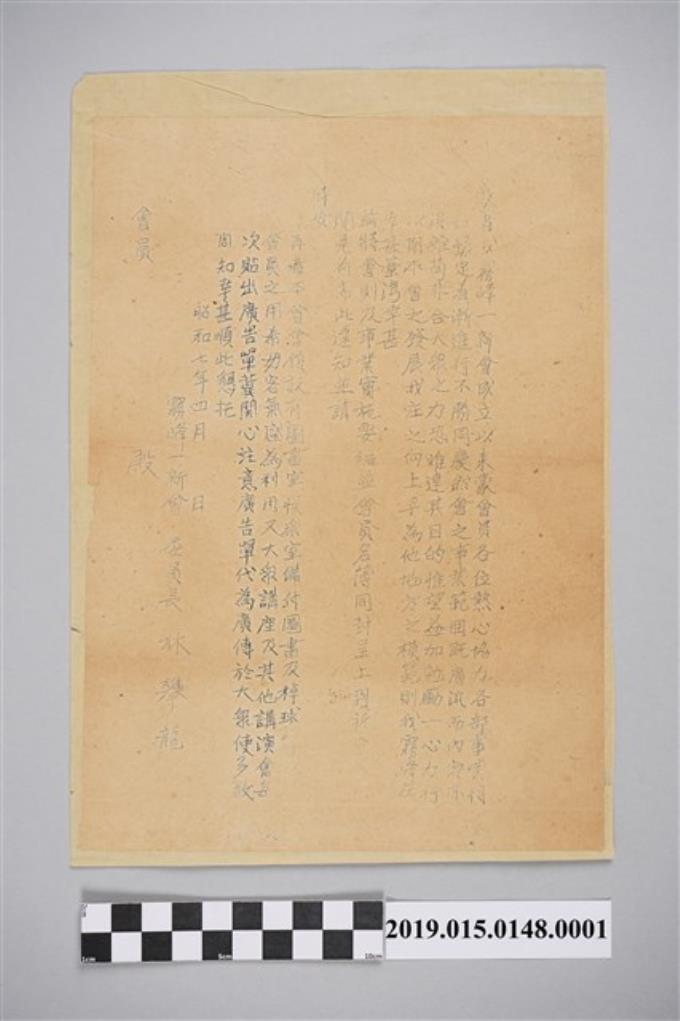 敬啟者霧峰一新會成立以來蒙會員各位熱心協力各部事業得
以穩定者漸進行不勝同慶然會之事業範圍既廣汎而內容亦
複雜苟非合大衆之力恐難達其目的惟望每加勉勵一心力行
以期本會之發展我庄之向上乎為他地方之模範則我霧峰庄
幸甚臺灣幸甚
茲將會則及事業實施要綱並會員名簿同封呈上到祈
關來為荷此達知並請
時安
再者本會常預設有圖書室娛樂室備付圖書及棹球
會員之用希勿客氣應為利用又大衆講座及其他講演會每
次貼出廣告單冀關心注意廣告單代為廣傳於大衆使多數
周知幸甚順此懇托
昭和七年四月 日
霧峰一新會 委員長 林攀龍
會員 殿
2019.015.0148.0001
1cm 5cm 10cm